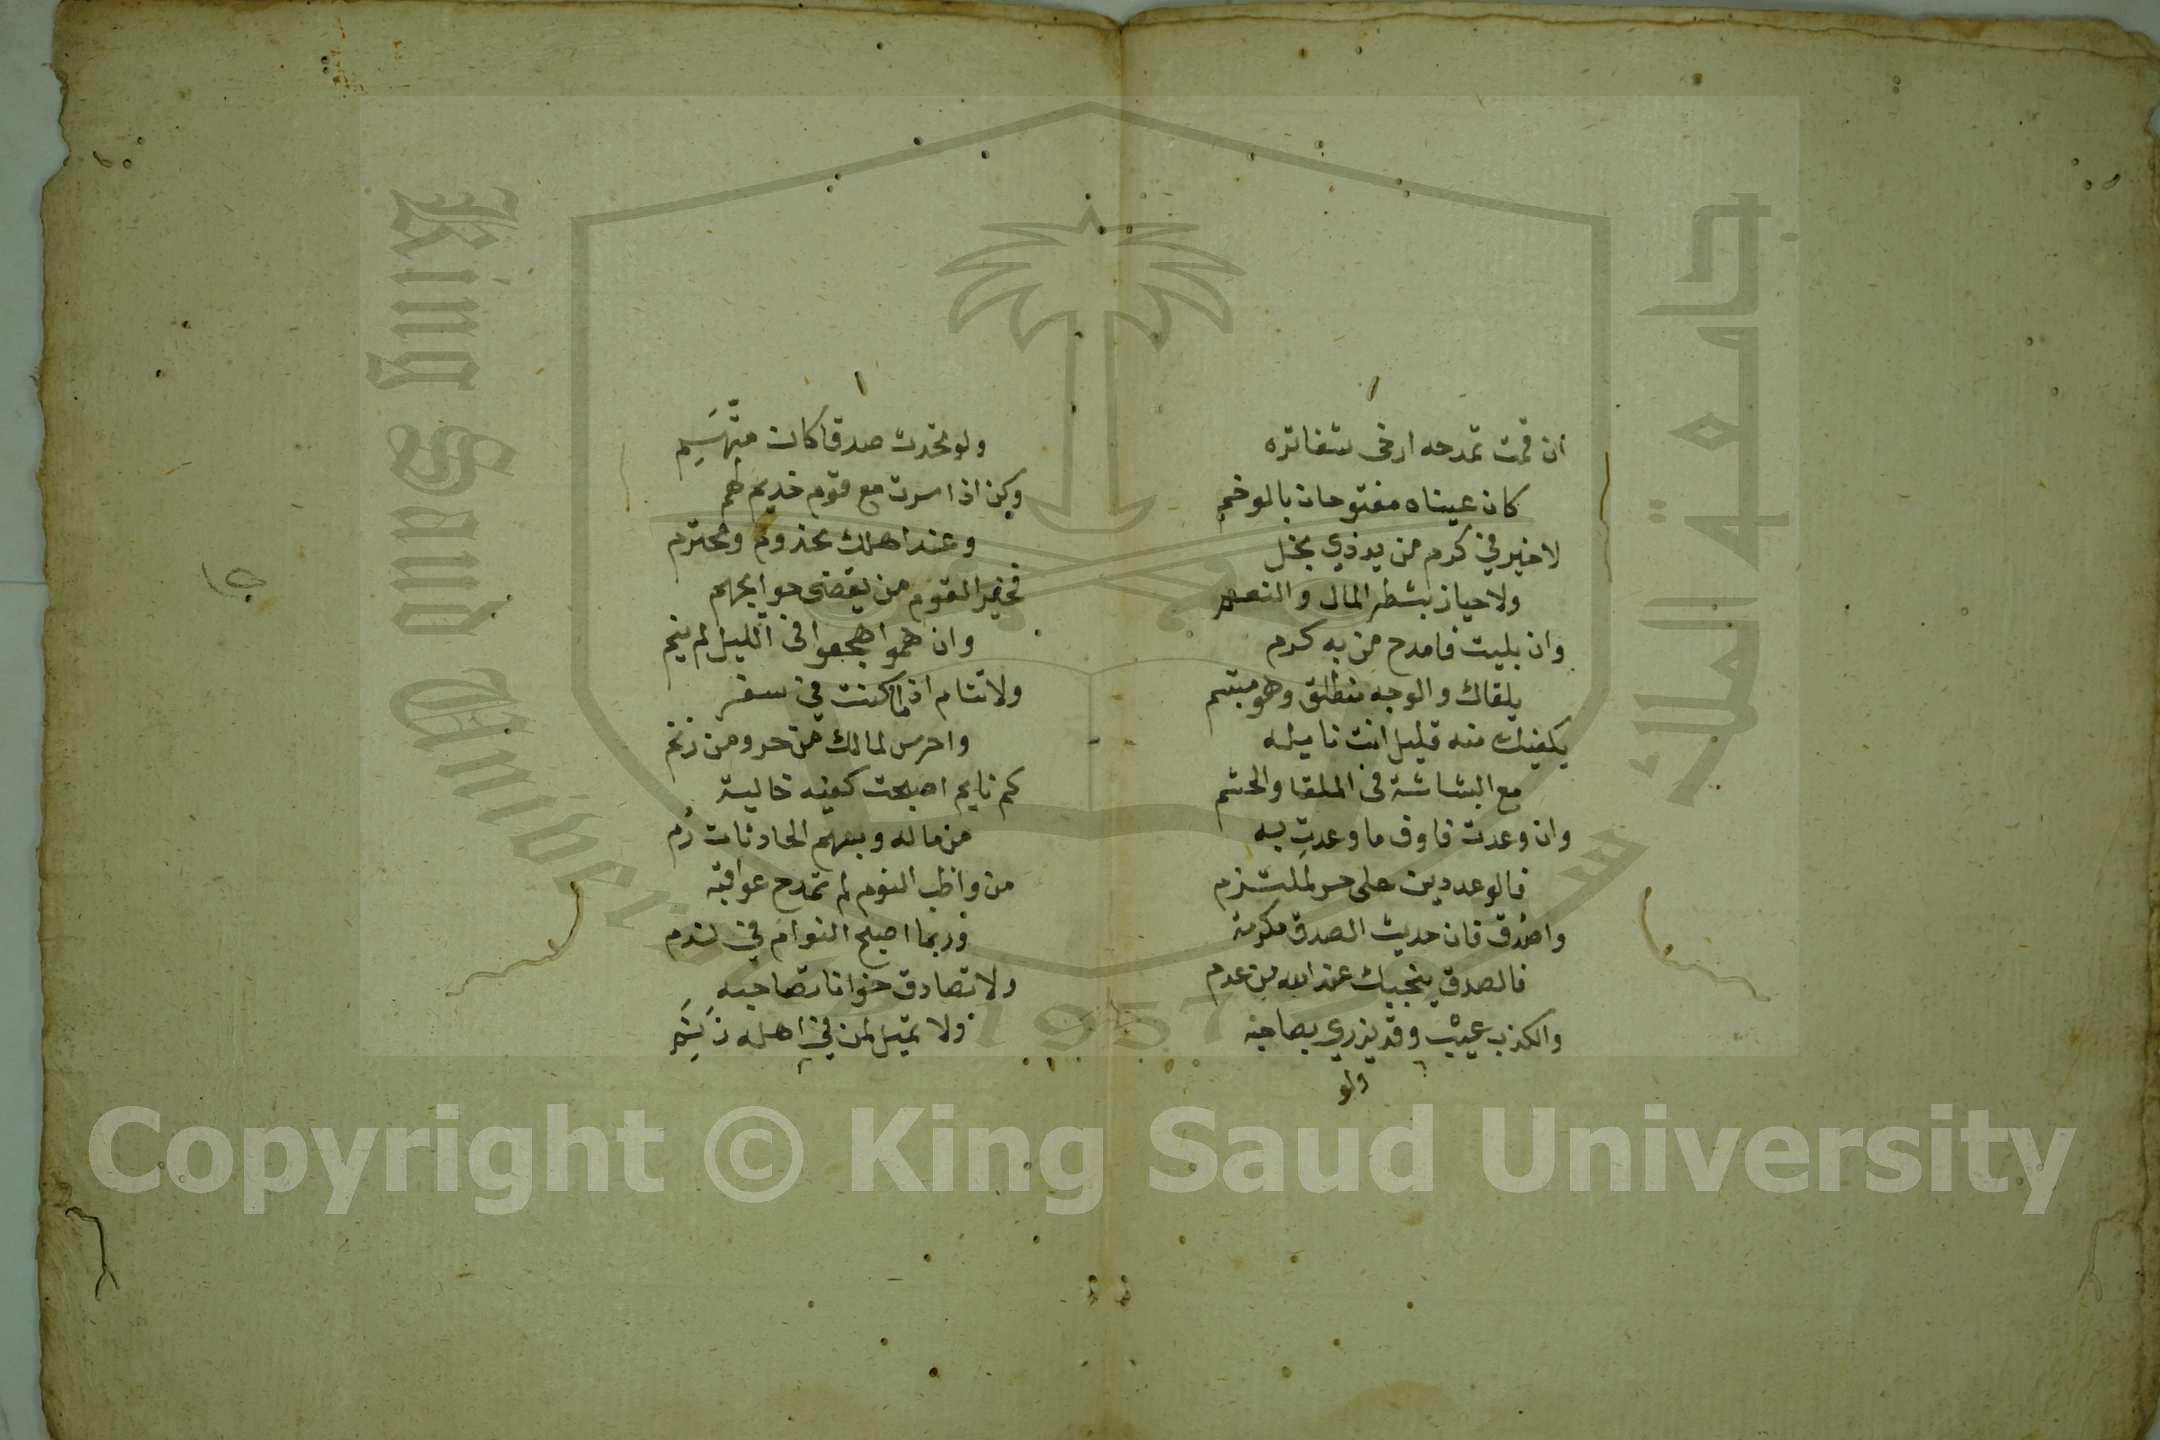 ان قمت تمدحه ارخى شفاتره
كان عيناه مفتوحان بالوخم
لا خير في كرم من يوذي بخل
ولا حياز بشطر المال والنعم
وان بليت فامدح من به كرم
يلقاك والوجه منطلق وهو مبتسم
يكفيك منه قليل انت نايله
مع البشاشة فى الملقا والحشم
وان وعدت فاوف ما وعدت به
فالوعد دين على حر لملتزم
واصدق فان حديث الصدق مكرمة
فالصدق ينجيك عند الله من عدم
والكذب عيب وقد يزري بصاحبه
ولو
ولو تحدث صدقا كان متهسم
وكن اذا سرت مع قوم خديم لهم
وعند اهلك مخدوم ومحترم
فخير القوم من يقضى حوايجهم
وان هموا هجعوا فى الليل لم ينم
ولا تنام اذا ما كنت في سفر
واحرس لمالك من حر ومن زنم
كم نايم اصبحت كفيه خالية
من ماله وبسهم الحادثات رم
من واظب النوم لم تمدح عواقبه
وربما اصبح النوام في ندم
ولا تصادق خوانا تصاحبه
ولا تميل لمن في اهله
Copyright © King Saud University
King Saud University
جامعة الملك سعود
1957